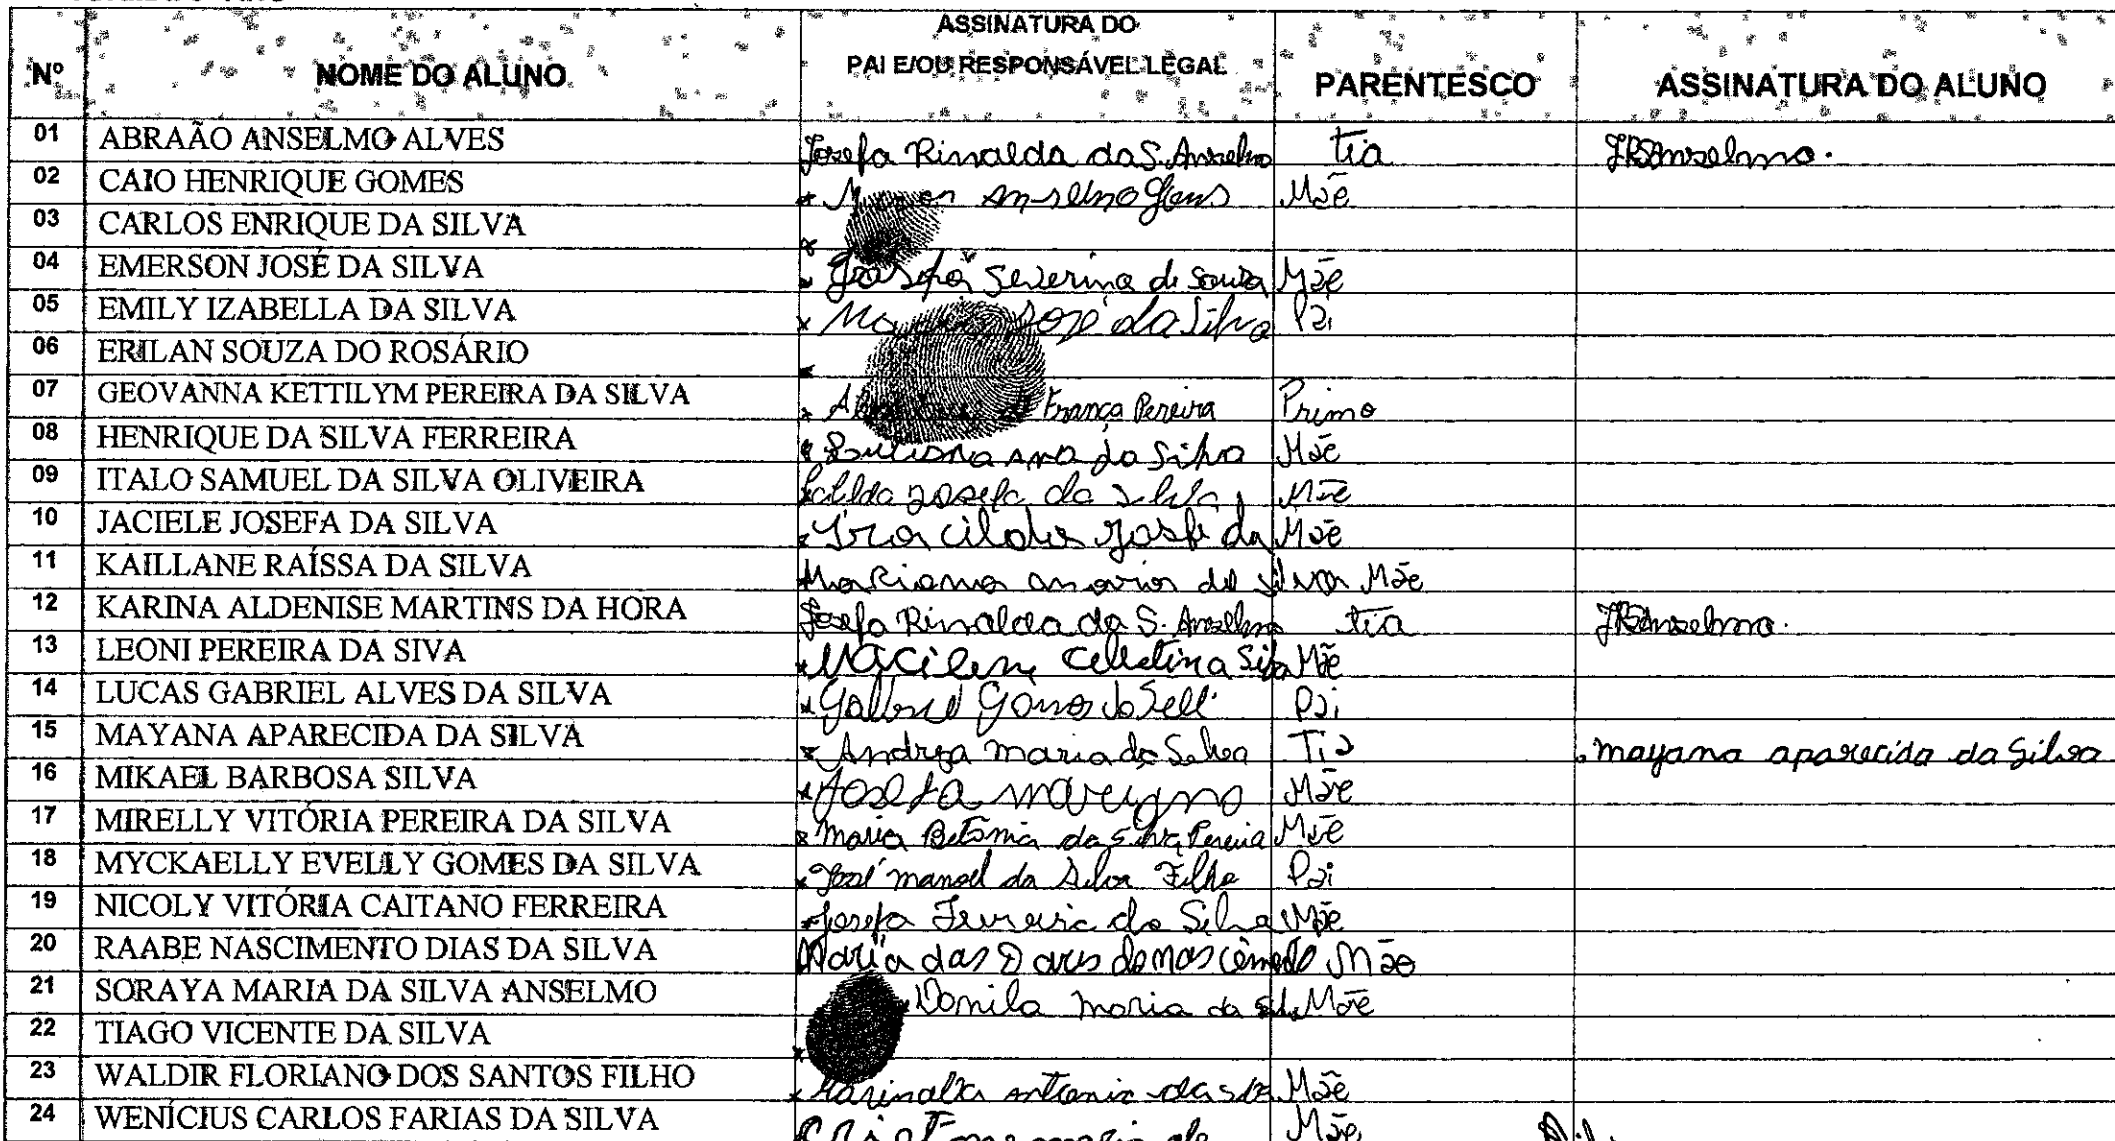 ASSINATURA DO
Nº NOME DO ALUNO PAI E/OU RESPONSÁVEL LEGAL PARENTESCO ASSINATURA DO ALUNO
01 ABRAÃO ANSELMO ALVES Josefa Rinalda da S. Anselmo tia JRSAnselmo.
02 CAIO HENRIQUE GOMES Mãe
03 CARLOS ENRIQUE DA SILVA
04 EMERSON JOSÉ DA SILVA Severina de Souza Mãe
05 EMILY IZABELLA DA SILVA José da Silva Pai
06 ERILAN SOUZA DO ROSÁRIO
07 GEOVANNA KETTILYM PEREIRA DA SILVA França Pereira Primo
08 HENRIQUE DA SILVA FERREIRA da Silva Mãe
09 ITALO SAMUEL DA SILVA OLIVEIRA Josefa da Mãe
10 JACIELE JOSEFA DA SILVA da Mãe
11 KAILLANE RAÍSSA DA SILVA Mãe
12 KARINA ALDENISE MARTINS DA HORA Josefa Rinalda da S. Anselmo tia JRSAnselmo.
13 LEONI PEREIRA DA SIVA Mãe
14 LUCAS GABRIEL ALVES DA SILVA Pai
15 MAYANA APARECIDA DA SILVA maria da Tia mayana aparecida da Silva
16 MIKAEL BARBOSA SILVA Josefa Mãe
17 MIRELLY VITÓRIA PEREIRA DA SILVA Maria Betânia da Silva Pereira Mãe
18 MYCKAELLY EVELLY GOMES DA SILVA José manoel da Silva Filho Pai
19 NICOLY VITÓRIA CAITANO FERREIRA Josefa Ferreira da Silva Mãe
20 RAABE NASCIMENTO DIAS DA SILVA Maria das Mãe
21 SORAYA MARIA DA SILVA ANSELMO maria da Mãe
22 TIAGO VICENTE DA SILVA
23 WALDIR FLORIANO DOS SANTOS FILHO Mãe
24 WENÍCIUS CARLOS FARIAS DA SILVA Mãe